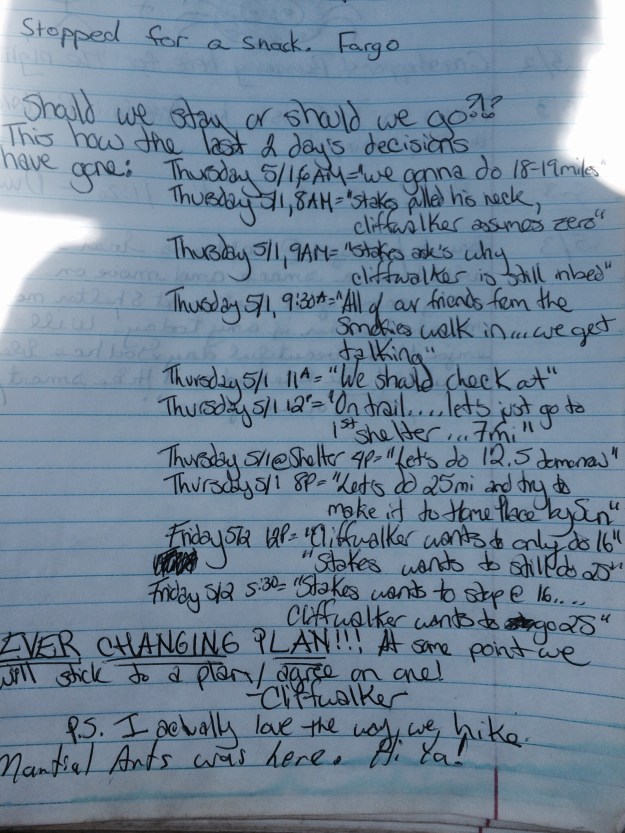 Stopped for a snack. Fargo
Should we stay or should we go?!?
This how the last 2 day's decisions
have gone: Thursday 5/1 6AM="we gonna do 18-19miles"
Thursday 5/1, 8AM="stakes pulled his neck,
cliffwalker assumes zero"
Thursday 5/1, 9AM="Stakes ask's why
cliffwalker is still inbed"
Thursday 5/1, 9:30A="All of our friends from the
Smokies walk in...we get
talking"
Thursday 5/1 11A="We should check out"
Thursday 5/1 12P="On trail....let's just go to
1st shelter...7mi"
Thursday 5/1@Shelter 4P="Let's do 12.5 tomorrow"
Thursday 5/1 8P="Let's do 25mi and try to
make it to Home Place by Sun"
Friday 5/2 12P="Cliffwalker wants to only do 16"
"Stakes wants to still do 25"
Friday 5/2 5:30="Stakes wants to stop @ 16....
Cliffwalker wants to go 25"
EVER CHANGING PLAN!!! At some point we
will stick to a plan/agree on one!
-Cliffwalker
P.S. I actually love the way we hike.
Mantial Ants was here. Hi Ya!